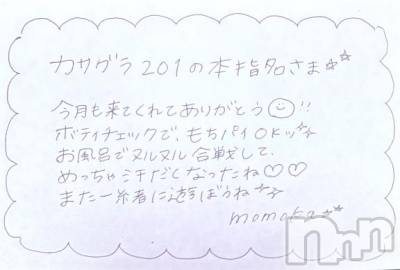 カサグラ201の本指名さま☆☆
今月も来てくれてありがとう☺!!
ボディチェックで、もちパイOKッ☆
お風呂でヌルヌル合戦して、
めっちゃ汗だくなったね♡♡
また一緒に遊ぼうね☆
momoka☆
Nnn